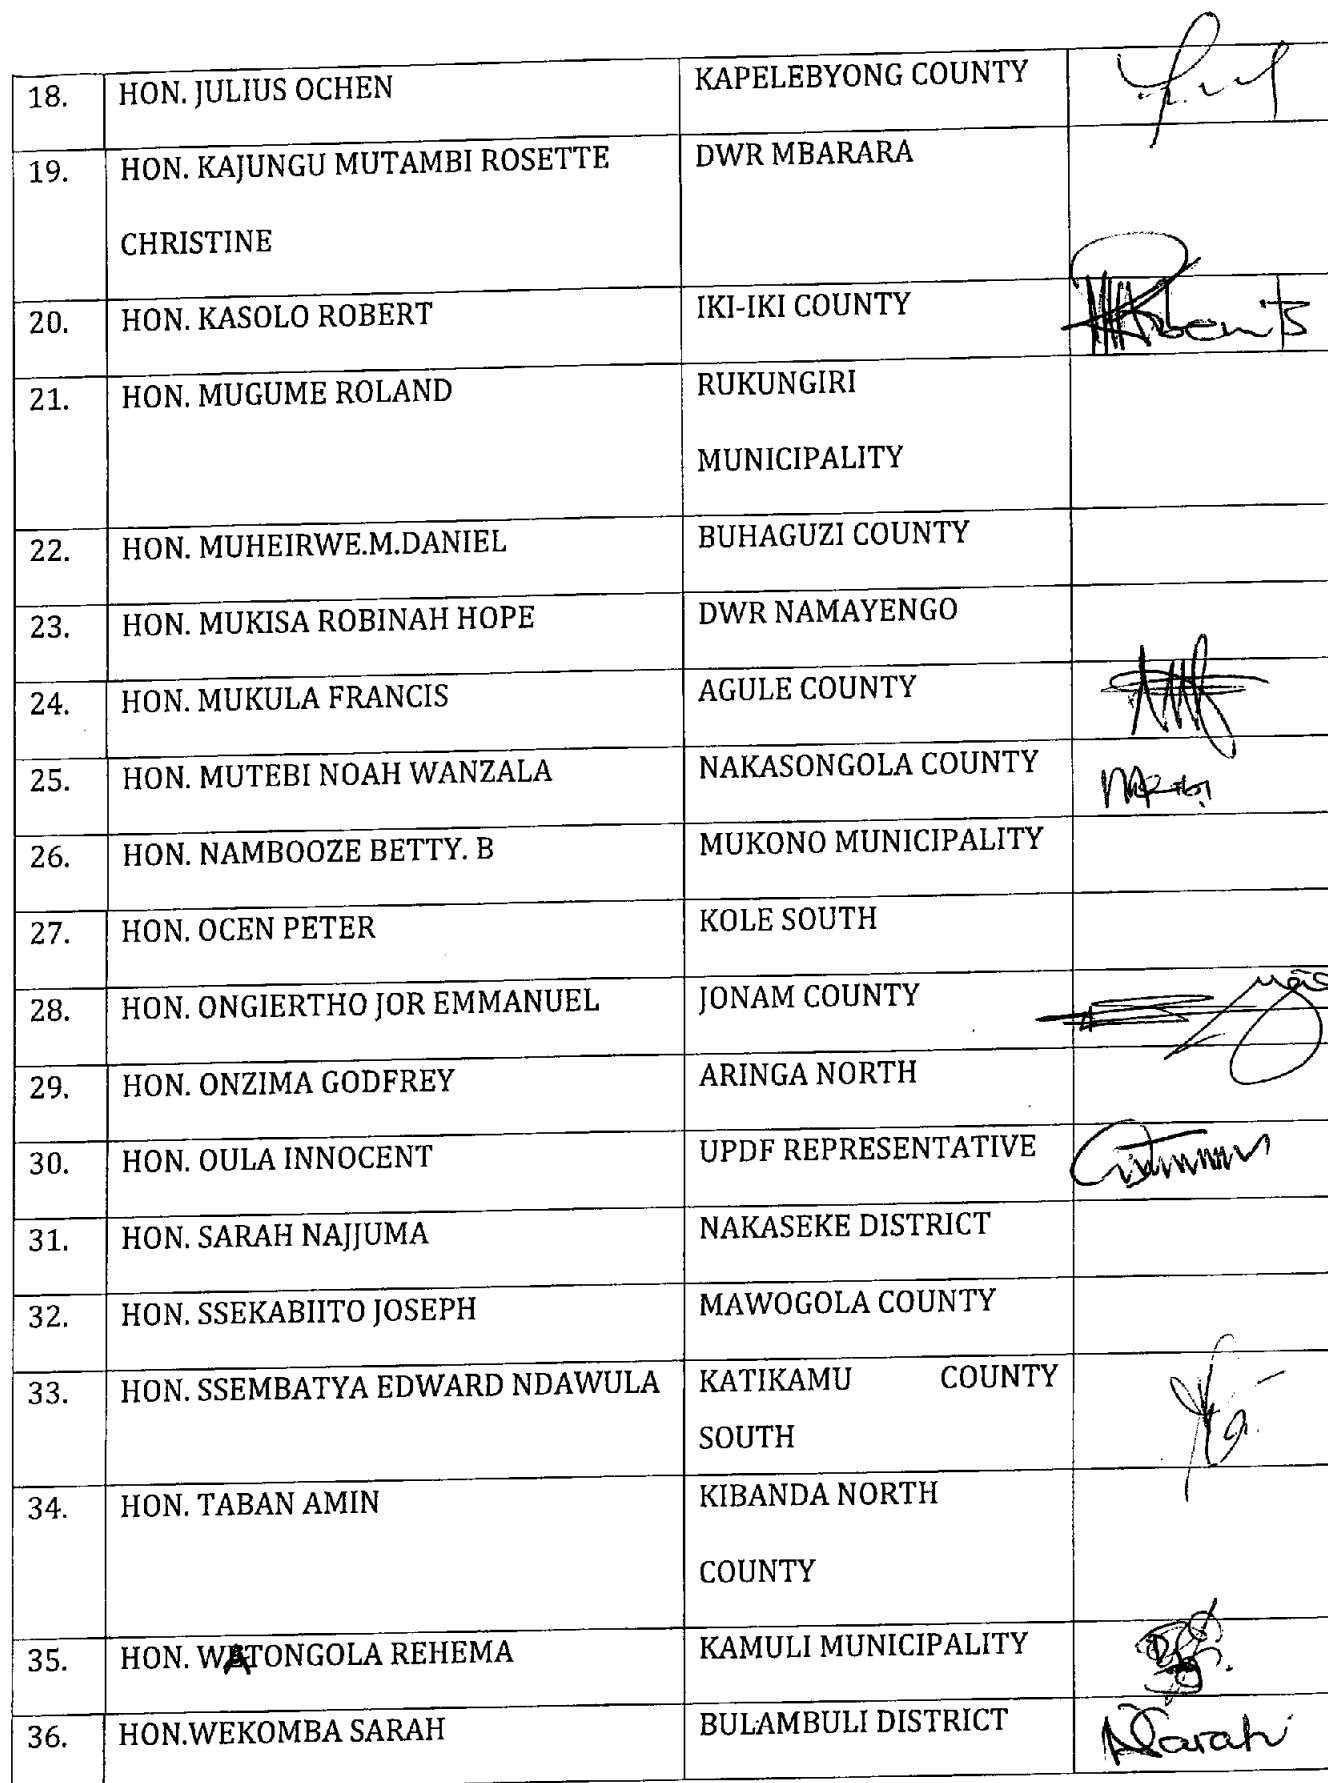 18. HON. JULIUS OCHEN KAPELEBYONG COUNTY
19. HON. KAJUNGU MUTAMBI ROSETTE DWR MBARARA
CHRISTINE
20. HON. KASOLO ROBERT IKI-IKI COUNTY
21. HON. MUGUME ROLAND RUKUNGIRI
MUNICIPALITY
22. HON. MUHEIRWE.M.DANIEL BUHAGUZI COUNTY
23. HON. MUKISA ROBINAH HOPE DWR NAMAYENGO
24. HON. MUKULA FRANCIS AGULE COUNTY
25. HON. MUTEBI NOAH WANZALA NAKASONGOLA COUNTY
26. HON. NAMBOOZE BETTY. B MUKONO MUNICIPALITY
27. HON. OCEN PETER KOLE SOUTH
28. HON. ONGIERTHO JOR EMMANUEL JONAM COUNTY
29. HON. ONZIMA GODFREY ARINGA NORTH
30. HON. OULA INNOCENT UPDF REPRESENTATIVE
31. HON. SARAH NAJJUMA NAKASEKE DISTRICT
32. HON. SSEKABIITO JOSEPH MAWOGOLA COUNTY
33. HON. SSEMBATYA EDWARD NDAWULA KATIKAMU COUNTY
SOUTH
34. HON. TABAN AMIN KIBANDA NORTH
COUNTY
35. HON. WATONGOLA REHEMA KAMULI MUNICIPALITY
36. HON.WEKOMBA SARAH BULAMBULI DISTRICT NSarah